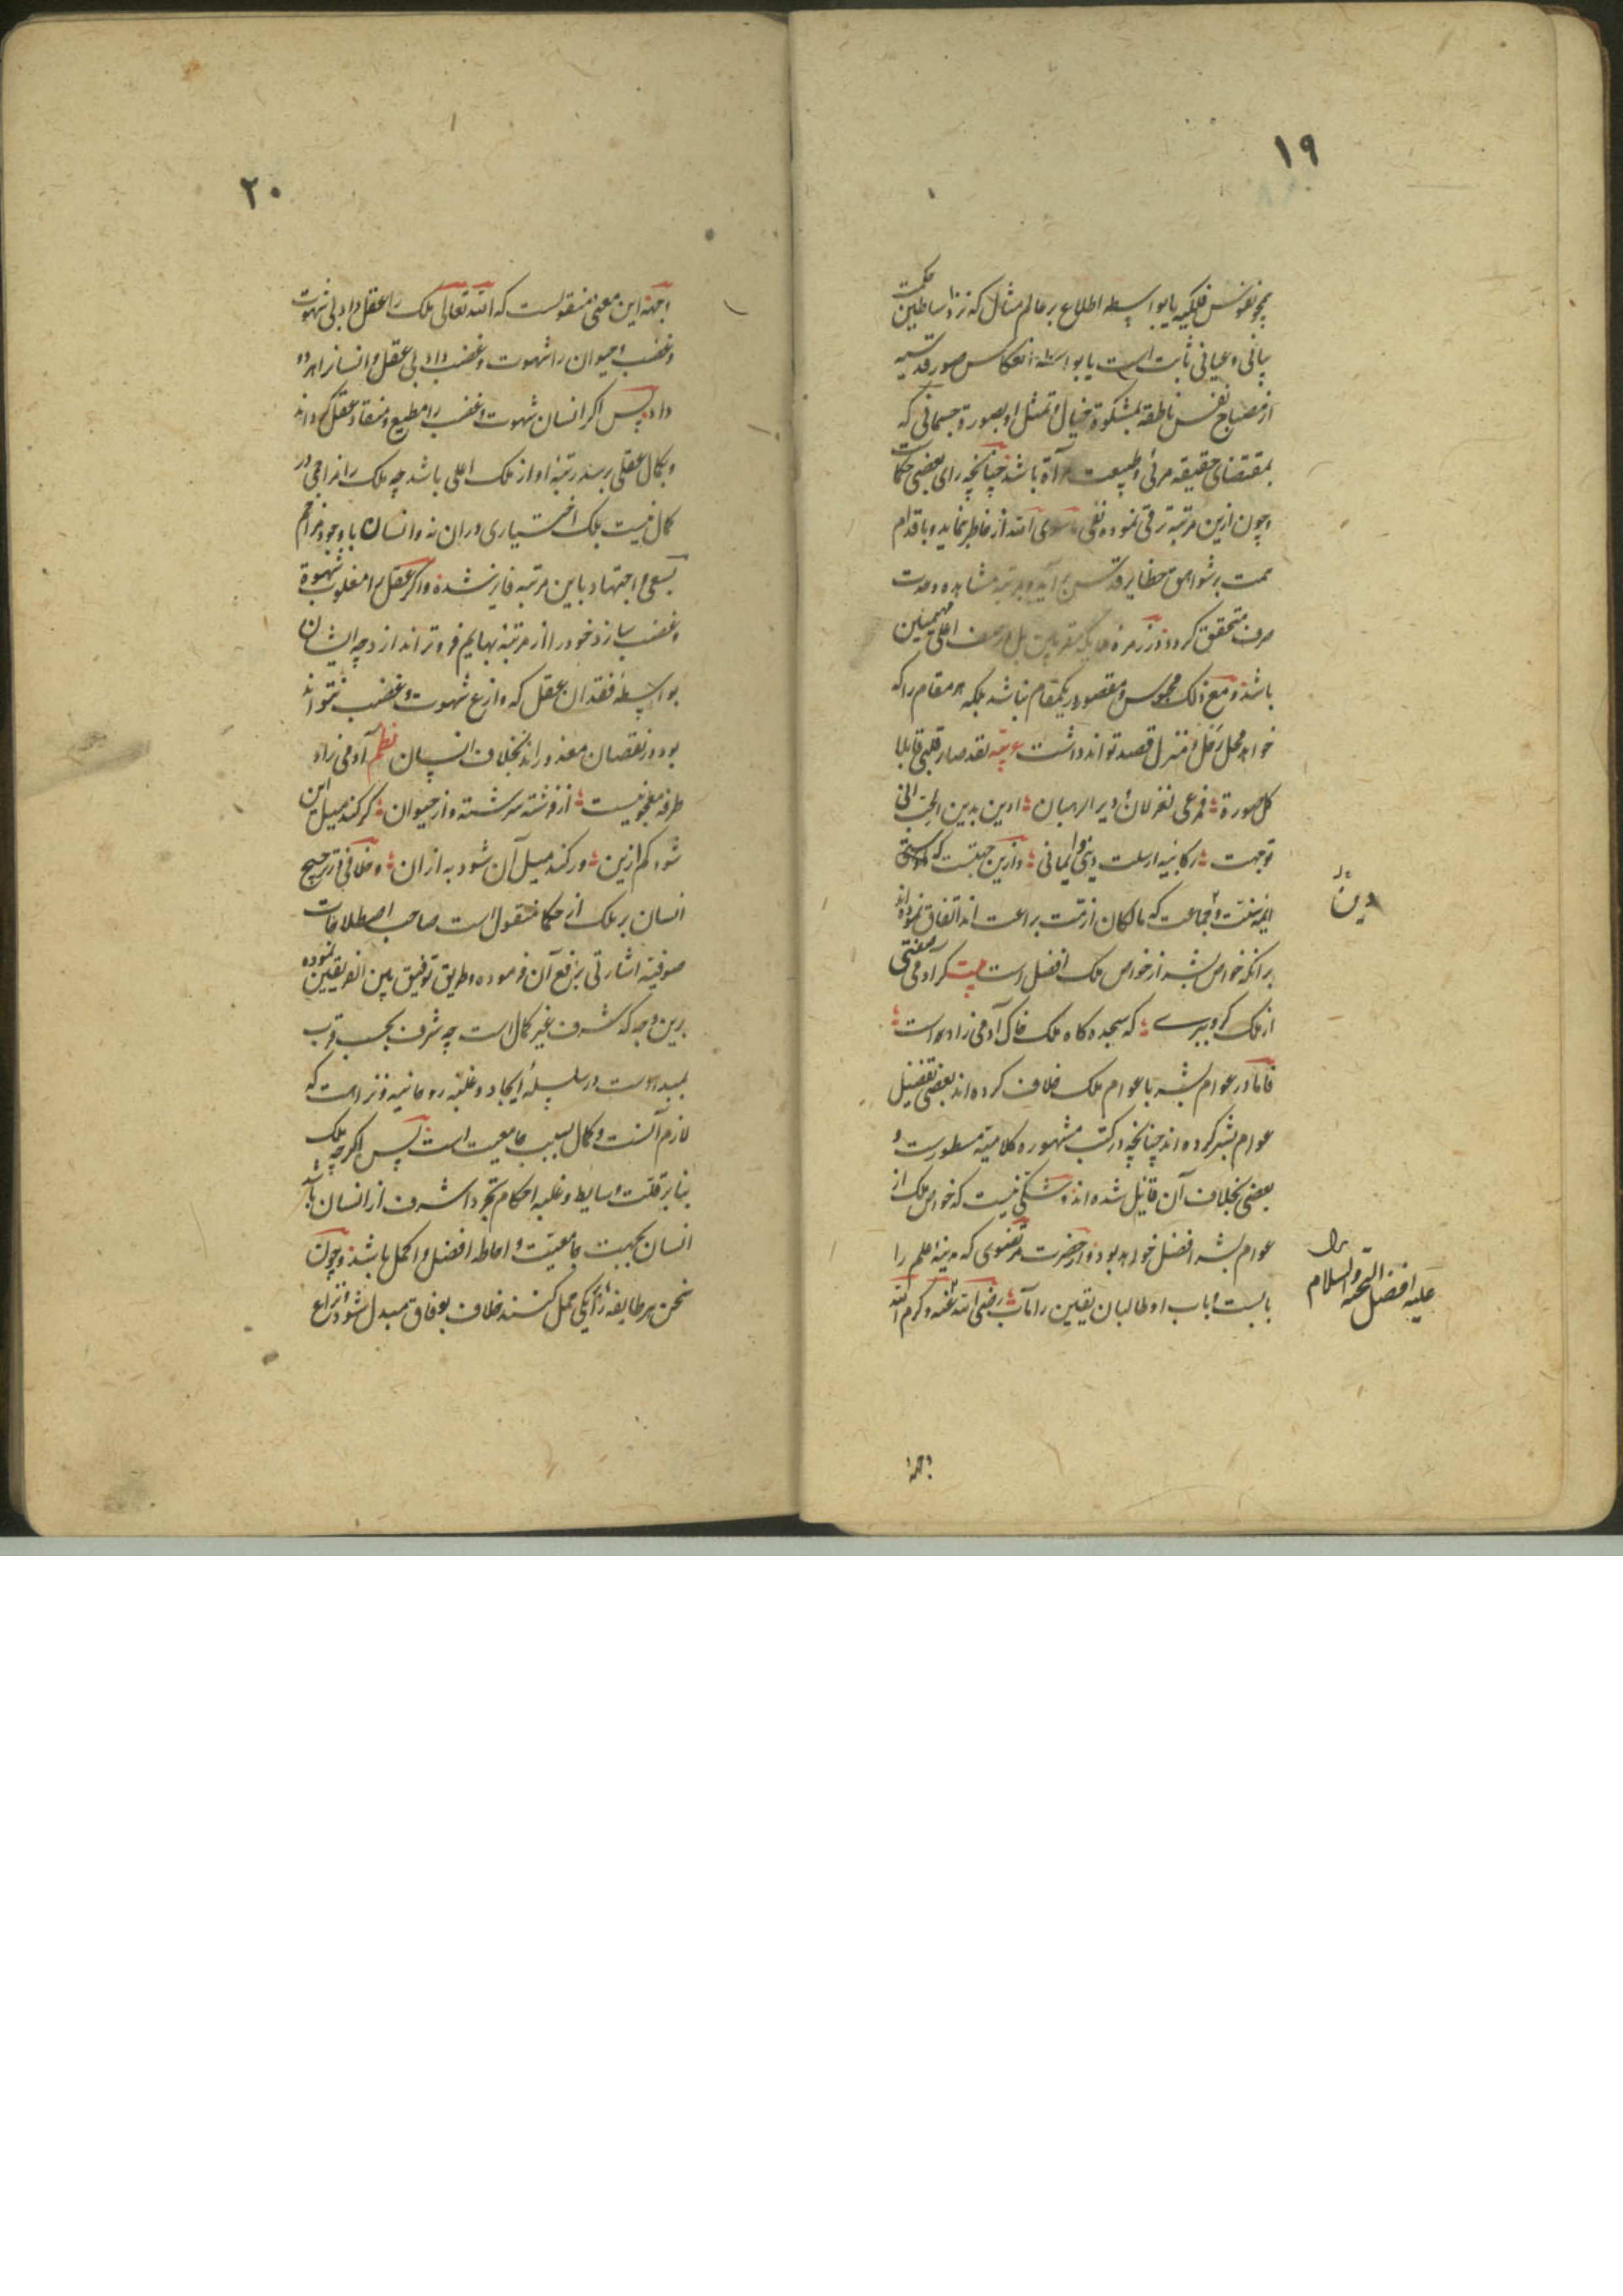 ۱۹
همچو نفوس فلکیه یا بواسطه اطلاع بر عالم مثال که نزد اساطین حکمت
بیانی و عیانی ثابت است یا بواسطه انعکاس صور قدسیه
از مصباح نفس ناطقه بمشکوة خیال و تمثل او بصورة جسمانی که
بمقتضای حقیقه مرئی و طبیعت مرآة باشد چنانچه رای بعضی حکماست
و چون ازین مرتبه ترقی نموده نفی ماسوی الله از خاطر نماید و باقدام
همت بر شواهق حظایر قدس برآید و بمرتبه مشاهده وحدت
صرف متحقق کردد در زمره ملایکه مقربین بل در صف اعلی مهیمین
باشد و مع ذلک محبوس و مقصور در یکمقام نباشد بلکه هر مقام را که
خواهد محل رحل و منزل قصد تواند داشت عربیّه لقد صار قلبی قابلا
کل صورة فمرعی لغزلان و دیر الرهبان ادین بدین الحب انی
توجهت رکائبه ارسلت دینی و ایمانی و ازین جهتست که
دین
ایمه سنت و جماعت که مالکان ازمّت براعت اند اتفاق نموده اند
برانکه خواص بشر از خواص ملک افضل است بیت کر آدمی صفتی
از ملک کرو ببری که سجده کاه ملک خاک آدمی زاده است
فاما در عوام بشر با عوام ملک خلاف کرده اند بعضی تفضیل
عوام بشر کرده اند چنانچه در کتب مشهوره کلامیّه مسطورست و
بعضی بخلاف آن قایل شده اند و شکی نیست که خواص ملک از
عوام بشر افضل خواهد بود و از حضرت مرتضوی که مدینه علم را
علیه افضل التحیه والسلام
بابست و باب او طالبان یقین را مآب رضی الله عنه و کرم الله
وجهه
۲۰
وجهه این معنی منقولست که الله تعالی ملک را عقل داد بی شهوت
و غضب و حیوان را شهوت و غضب داد بی عقل و انسانرا هر دو
داد پس اکر انسان شهوت و غضب را مطیع و منقاد عقل کرداند
و بکمال عقلی برسد رتبه او از ملک اعلی باشد چه ملک را مزاحمی در
کمال نیست بلک اختیاری دران نه و انسان با وجود مزاحم
بسعی و اجتهاد باین مرتبه فایز شده و اکر عقل را مغلوب شهوة
و غضب سازد خود را از مرتبه بهایم فروتر اندازد چه ایشان
بواسطه فقدان عقل که وازع شهوت و غضب نتواند
بود در نقصان معذوراند بخلاف انسان نظم آدمی زاده
طرفه معجونیست از فرشته سرشته و از حیوان کر کند میل این
شود کم ازین ور کند میل آن شود به ازان و خلافی در ترجیح
انسان بر ملک از حکما منقول است صاحب اصطلاحات
صوفیه اشارتی برفع آن فرموده و طریق توفیق بین الفریقین نموده
برین وجه که شرف غیر کمال است چه شرف بحسب قرب
بمبدءست در سلسله ایجاد و غلبه روحانیه و نزاهت که
لازم آنست و کمال بسبب جامعیت است پس اکرچه ملک
بنابر قلّت وسایط و غلبه احکام تجرد اشرف از انسان باشد
انسان بجهت جامعیّت و احاطه افضل و اکمل باشد و چون
سخن هر طایفه را بر یکی حمل کنند خلاف بوفاق مبدل شود و نزاع